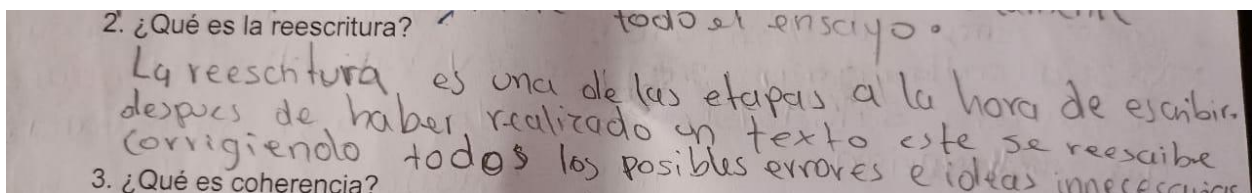 2. ¿Qué es la reescritura?
todo el ensayo.
La reescritura es una de las etapas a la hora de escribir.
despues de haber realizado un texto este se reescribe
corrigiendo todos los posibles errores e ideas innecesarias
3. ¿Qué es coherencia?